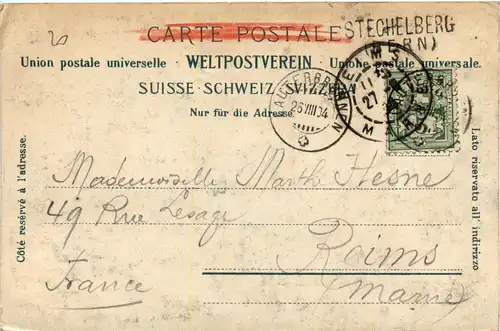 20
CARTE POSTALE
STECHELBERG
(BERN)
Union postale universelle · WELTPOSTVEREIN · Unione postale universale.
SUISSE · SCHWEIZ · SVIZZERA
Nur für die Adresse.
LAUTERBRUNNEN
26 III 04
REIMS
11
27
MARNE
Côté resérvé à l'adresse.
Lato riservato all' indirizzo
Mademoiselle Marth Hesne
49 Rue Lesage
Reims
France
(Marne)